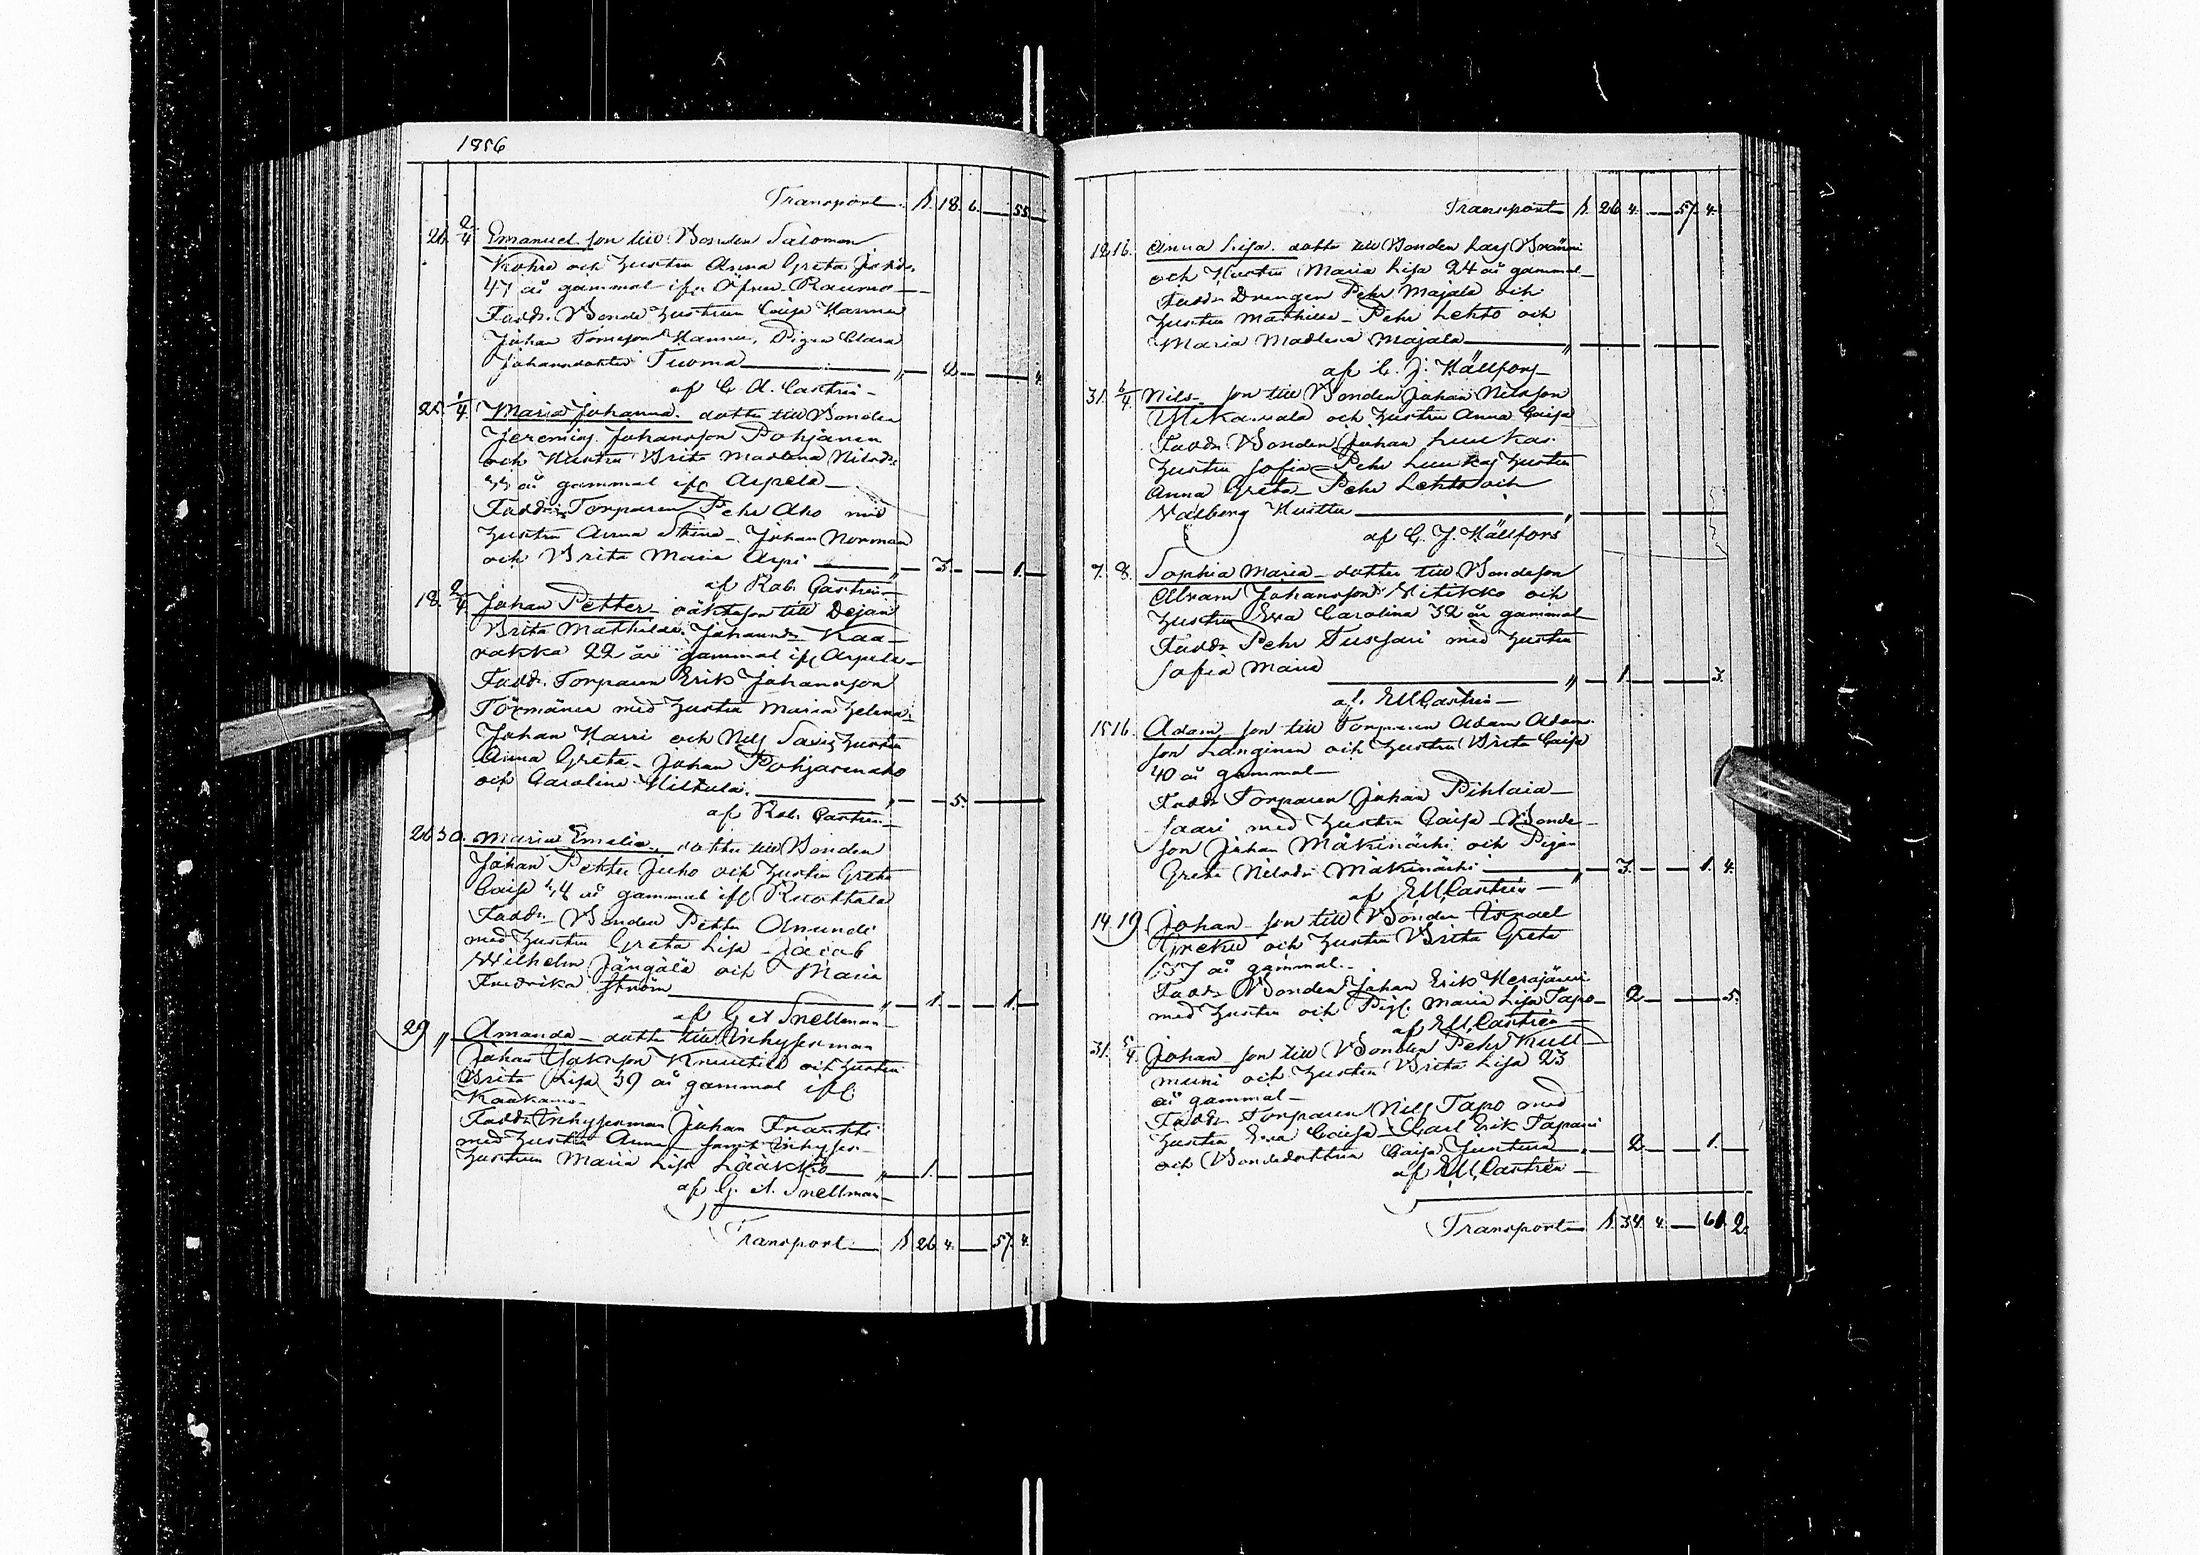 1856
Transport. 18. 6. — 55.
26. 2/4 Emanuel son till Bonden Salomon
Kohre och hustru Anna Greta
47 år gammal ifr. Öfver Raumo
Fadd. Bonde hustrun Caisa Hannu
Johan Hannu, Pigan Clara
Johansdotter Tuoma — " — 2 — — 4.
af C. A. Castrén
25. 1/4 Maria Johanna dotter till Bonden
Jeremias Johansson Pohjanen
och Hustru Brita Madlena Nilsdr
år gammal ifr Arpela
Faddr. Torparen Pehr Aho med
hustru Anna Stina. Johan Norman
och Brita Maria Arpi — " — 3. — 1. —
af Rob. Castrén
18. 2/4 Johan Petter oäkta son till Dejan
Brita Mathilda Johansdr Kaa-
rakka 22 år gammal ifr Arpela
Fadd. Torparen Erik Johansson
Törmänen med hustru Maria Helena.
Johan Harri och Nils hustru
Anna Greta. Johan Pohjasenaho
och Carolina — " — 5. —
af Rob. Castrén
26 30. Maria Emelia, dotter till Bonden
Johan Petter Juho och hustru Greta
Caisa 44 år gammal ifr Ruottala
Fadd. Bonden Petter Alamundi
med hustru Greta Lisa Jacob
Wilhelm och Maria
Fredrika Ström — " — 1. — 1. —
af G A Snellman
29 " Amanda dotter till Inhysesman
Johan Knuutila och hustru
Brita Lisa 39 år gammal ifr.
Kaakamo
Fadd. Inhysesman Johan Frankki
med hustru Anna samt Inhyses-
hustrun Maria Lisa Lääkkö — " — 1. —
af G. A. Snellman
Transport — 26 4. — 57. 4.
Transport 26 4. — 57. 4.
12 16. Anna Lisa dotter till Bonden Lars Bränni
och Hustru Maria Lisa 24 år gammal
Faddr Drengen Pehr Majala och
hustru Mathilda. Pehr Lehto och
Maria Madlena Majala — "
af C. J. Hällfors
31. 6/4. Nils son till Bonden Johan Nilsson
och hustru Anna Caisa
Faddr. Bonden Johan Luukas
hustru Sofia. Pehr Luukas hustru
Anna Greta. Pehr Lehto och
Valborg Huittu — "
af C. J. Hällfors
7. 8. Sophia Maria dotter till Bondeson
Abram Johansson och
hustru Eva Carolina 32 år gammal
Faddr Pehr med hustru
Sofia Maria — " — 1. — 3.
af. EM Castrén
15 16. Adam son till Torparen Adam Adam
son Langinen och hustru Brita Caisa
40 år gammal
Faddr Torparen Johan Pihlaja-
saari med hustru Caisa. Bonde
son Johan Mäkinärhi och Pigan
Greta Nilsdr Mäkinärhi — " — 3. — 1. 4.
af EM Castrén
14 19. Johan son till Bonden Israel
Greku och hustru Brita Greta
37 år gammal.
Faddr Bonden Johan Erik Herajärvi
med hustru och Pig. Maria Lisa Tapo — 2 — 5.
af EM Castrén
31. 5/4. Johan son till Bonden Pehr Kull-
muni och hustru Brita Lisa 23
år gammal
Faddr Torparen Nils Tapo med
hustru Eva Caisa. Carl Erik Tapani
och Bondedottren Caisa Juntura " — 2 — 1. —
af EM Castrén
Transport 34. 4. — 61. 2.